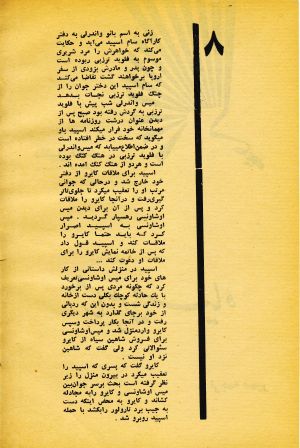 ۸
زنی به اسم بانو واندرلی به دفتر
کارآگاه سام اسپید می‌آید و حکایت
می‌کند که خواهرش را مرد شریری
موسوم به فلوید ترزبی ربوده است
و چون پدر و مادرش بزودی از سفر
اروپا برخواهند گشت تقاضا می‌کند
که سام اسپید این دختر جوان را از
چنگ فلوید ترزبی نجات بدهد
میس واندرلی شب پیش با فلوید
ترزبی به گردش رفته بود صبح پس از
دیدن عنوان درشت روزنامه ها از
مهمانخانه خود فرار میکند اسپید باو
میگوید که سخت در خطر افتاده است
و در ضمن اطلاع میابد که میس واندرلی
با فلوید ترزبی در هنگ کنگ بوده
است و هردو از هنگ کنگ آمده اند.
اسپید برای ملاقات کایرو از دفتر
خود خارج شد و درحالی که جوانی
مرتب او را تعقیب میکرد تا جلوی تاتر
گیری رفت و در آنجا کایرو را ملاقات
کرد و پس از آن برای دیدن میس
اوشاونسی رهسپار گردید. میس
اوشاونسی به اسپید اصرار
کرد که باید حتما کایرو را
ملاقات کند و اسپید قول داد
که پس از خاتمه نمایش کایرو را برای
ملاقات او دعوت کند ...
اسپید در منزلش داستانی از کار
های خود برای میس اوشاونسی تعریف
کرد که چگونه مردی پس از برخورد
با یک حادثه کوچک بکلی دست از خانه
و زندگی شست و بدون این که ردپائی
از خود برجای گذارد به شهر دیگری
رفت و در آنجا بکار پرداخت وسپس
کایرو وارد منزل شد و میس اوشاونسی
برای فروش شاهین سیاه از کایرو
سئوالاتی کرد ولی گفت که شاهین
نزد او نیست.
کایرو گفت که پسری که اسپید را
تعقیب میکرد در بیرون منزل را زیر
نظر گرفته است بحث برسر جوان بین
میس اوشاونسی و کایرو را به مجادله
کشاند و کایرو به محض اینکه دست
به جیب برد تا رولور را بکشد با حمله
اسپید روبرو شد.